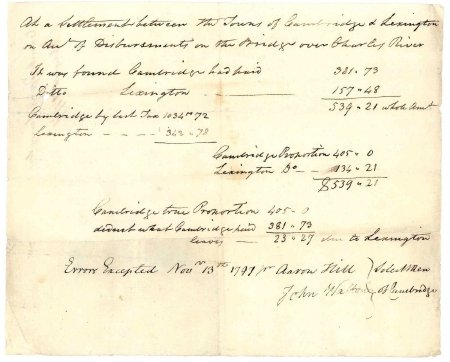 At a Settlement between the Towns of Cambridge & Lexington
on Acct of Disbursments on the Bridge over Charles River
It was found Cambridge had paid 381 " 73
Ditto Lexington — 157 " 48
539 " 21 whole Amt
Cambridge by last Tax 1034 72
Lexington — — — 342 " 78
Cambridge Proportion 405 " 0
Lexington Do — 134 " 21
$539 " 21
Cambridge true Proportion 405 " 0
deduct what Cambridge paid 381 " 73
leaves — 23 " 27 due to Lexington
Errors Excepted Novr 13th 1797 pr Aaron Hill } Selectmen
John Walton } of Cambridge